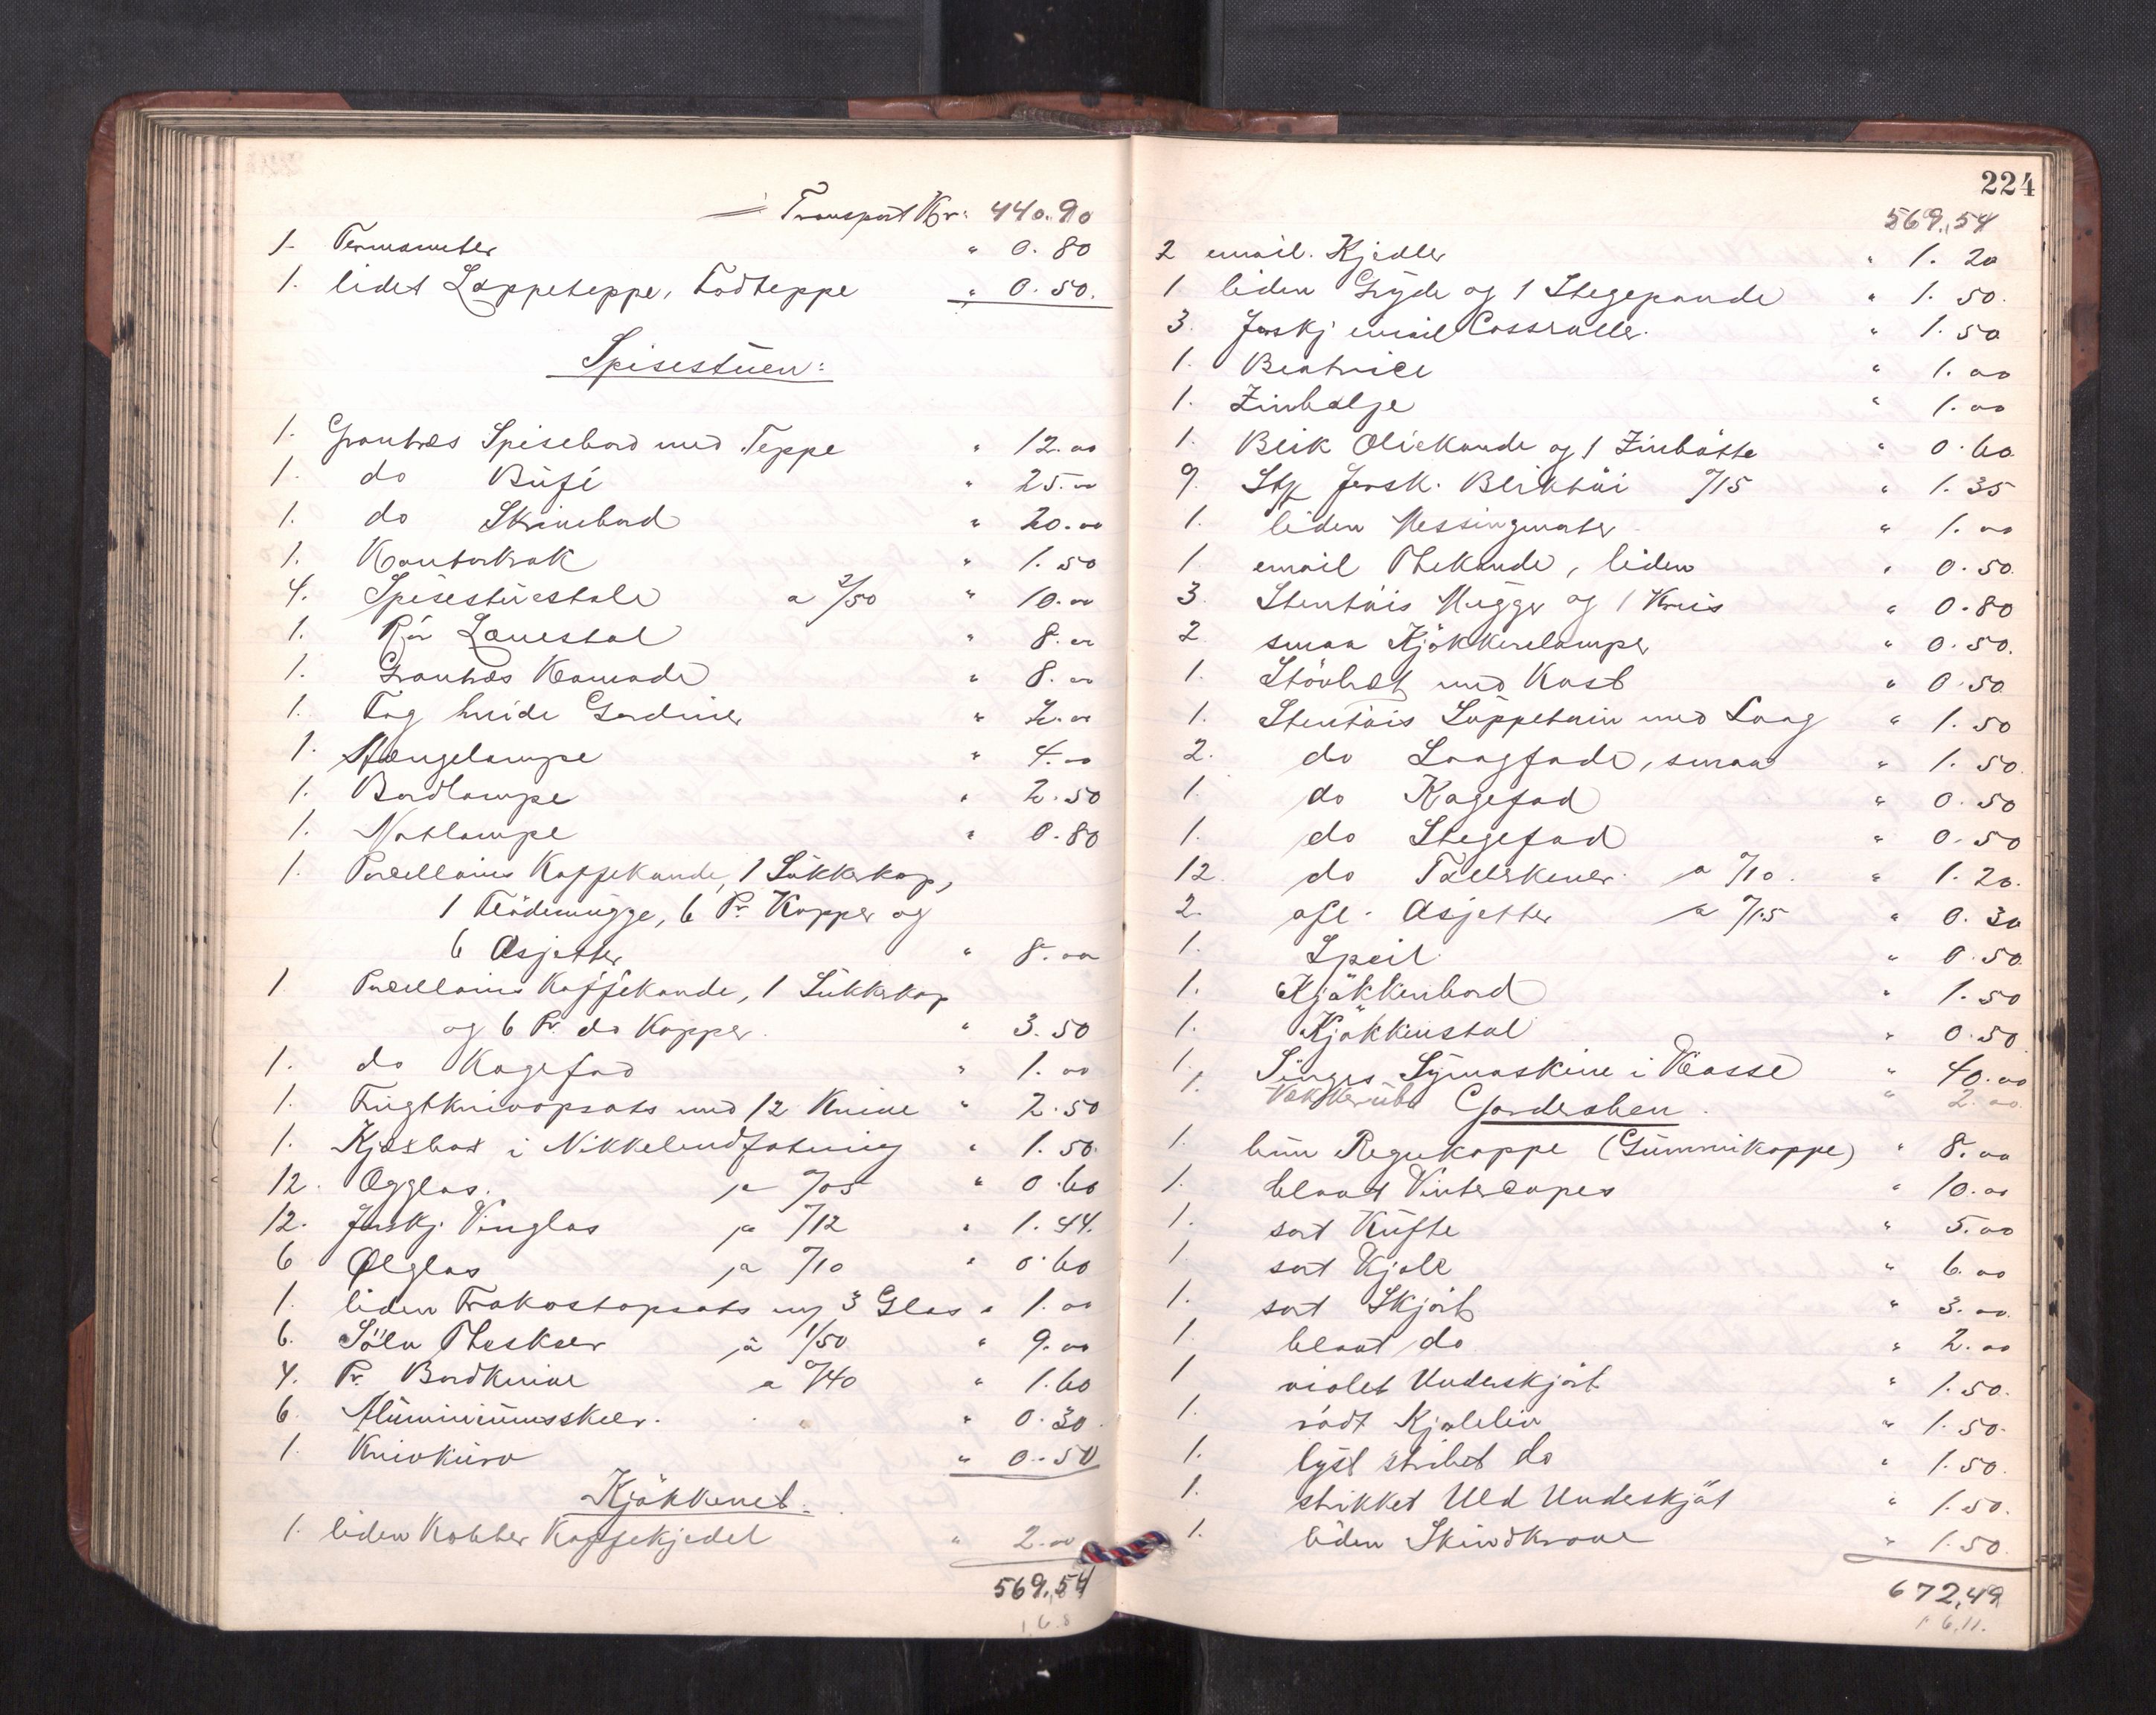 Transport Kr. 440.90
1. Termometer " 0.80
1. lidet Loppeteppe, Fodteppe " 0.50.
Spisestuen:
1. Grantræs Spisebord med Teppe " 12.00
1. do Bufé " 25.00
1. do Skrivebord " 20.00
1. Kontorkrak " 1.50
4. Spisestuestole a 2/50 " 10.00
1. Rør Lænestol " 8.00
1. Grantræs Komode " 8.00
1. Fag hvide Gardiner " 2.00
1. Hængelampe " 4.00
1. Bordlampe " 2.50
1. Natlampe " 0.80
1. Porcellains Kaffekande, 1 Sukkerkop,
1 Flödemugge, 6 Pr. Kopper og
6 Asjetter " 8.00
1 Porcellains Kaffekande, 1 Sukkerkop
og 6 Pr. do Kopper. " 3.50
1. do Kagefad " 1.00
1. Frugtknivopsats med 12 Knive " 2.50
1. Kjæxbox i Nikkelindfatning " 1.50.
12. Æggglas. a 0/05 " 0.60
12. Forskj. Vinglas a 0/12 " 1.44.
6 Ølglas a 0/10 " 0.60
1. liden Frokostopsats m/ 3 Glas " 1.00
6. Sölv Theskeer a 1/50 " 9.00
4. Pr. Bordknive a 0/40 " 1.60
6. Aluminiumsskeer. " 0.30.
1. Knivkurv " 0.50
Kjökkenet:
1. liden Kobber Kaffekjedel " 2.00
569.54
1.6.8
224
569.54
2 email. Kjedler " 1.20
1 liden Gryde og 1 Stegepande " 1.50.
3. Forskj email Casseroller. " 1.50
1. Beatrice " 1.00
1. Zinkbalje " 1.00
1. Blik Oliekande og 1 Zinkbötte " 0.60.
9. Stk Forsk. Bliktöi 0/15 " 1.35
1. liden Messingmorter " 1.00
1. email Thekande, liden " 0.50.
3 Stentöis Mugger og 1 Krus " 0.80
2 smaa Kjökkenlamper " 0.50.
1. Stövbræt med Kost " 0.50.
1. Stentöis Suppeterin med Laag " 1.50
2. do Laagfade, smaa " 1.50.
1. do Kagefad " 0.50
1. do Stegefad " 0.50
12. do Tallerkener. a 0/10. " 1.20.
2. afl. Asjetter a 0/15 " 0.30
1. Speil " 0.50.
1. Kjökkenbord " 1.50
1. Kjökkenstol " 0.50
1. Singer Symaskine i Kasse " 40.00
1. " 2.00
Garderoben.
1. brun Regnkappe (Gummikappe) " 8.00
1. blaat Vintercapes " 10.00
1. sort Kufte " 5.00
1. sort Kjole " 6.00
1. sort Skjört " 3.00.
1. blaat do " 2.00
1 violet Underskjört " 1.50.
1. rödt Kjoleliv " 1.50.
1. lyst stribet do " 1.50.
1. strikket Uld Underskjört " 1.50.
1. liden Skindkrave " 1.50.
672,49
1 6.11.